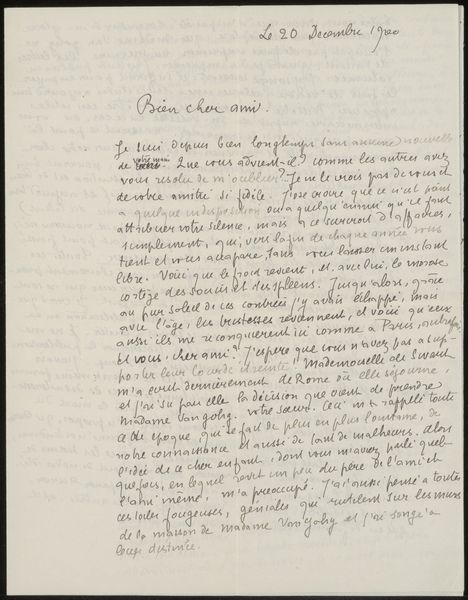 Le 20 Decembre 1900
Bien cher ami.
Je suis depuis bien longtemps sans aucune nouvelle
de votre main. Que vous advient-il? comme les autres avez
vous resolu de m'oublier? Je ne le crois pas de vous et
de votre amitié si fidèle. J'ose croire que ce n'est point
a quelque indisposition ou a quelqu'ennui qu'il faut
attribuer votre silence, mais a ce surcroit d'affaires,
simplement, qui, vers la fin de chaque année vous
tient et vous accapare, sans vous laisser un instant
libre. Voici que le froid revient, et, avec lui, le morose
cortège des soucis et des spleens. Jusqu'alors, grâce
au pur soleil de ces contrées j'y avais échappé, mais
avec l'âge, les tristesses reviennent, et voici qu'eux
aussi ils me reconquierent ici comme a Paris, autrefois
Et vous, cher ami? J'espère que vous n'avez pas a sup-
porter leur lourde étreinte! Mademoiselle de Swart
m'a écrit dernièrement de Rome où elle séjourne,
et j'ai su par elle la décision que vient de prendre
Madame Van Gohg. votre sœur. Ceci m'a rappelé toute
cette époque, qui se fait de plus en plus lointaine, de
notre connaissance et aussi de tant de malheurs. Alors
l'idée de ce cher enfant, dont vous m'aviez parlé quel-
quefois, en lequel revit un peu du père de l'ami et
l'ami même, m'a préoccupé. J'ai aussi pensé a toutes
ces toiles fougueuses, géniales qui rutilent sur les murs
de la maison de Madame Van Gohg et j'ai songé a
leurs destinée.